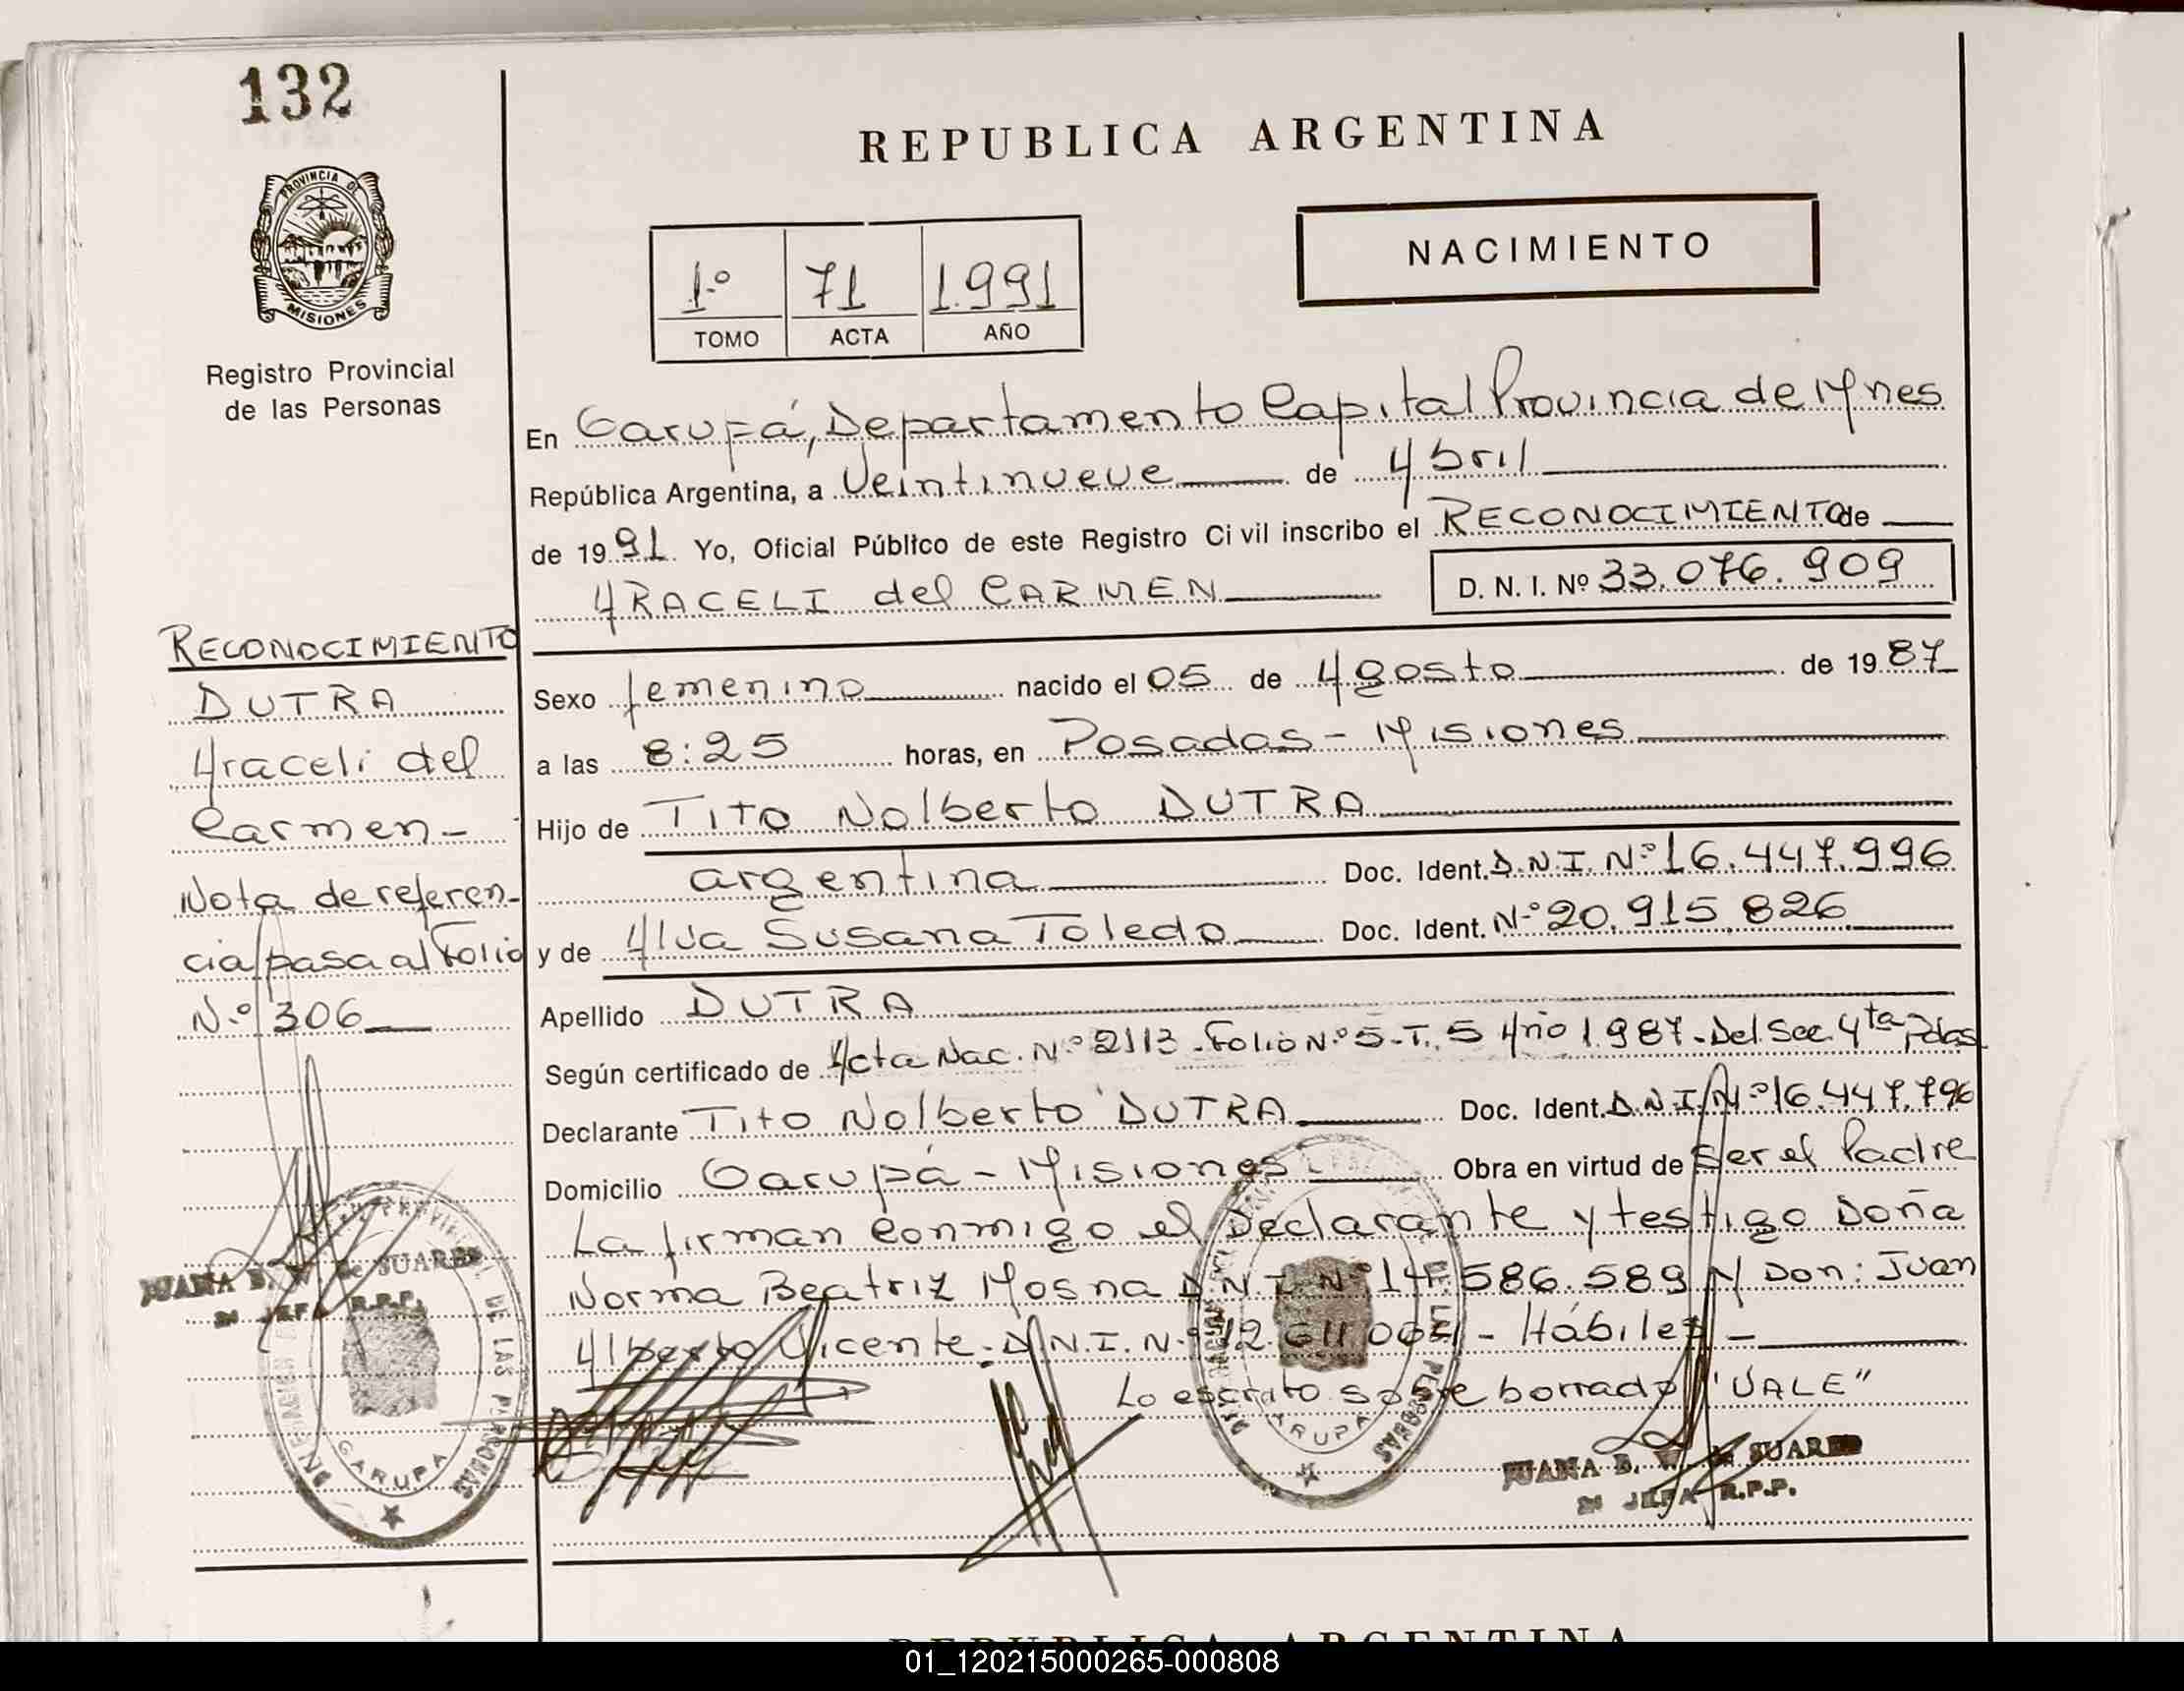 132
REPUBLICA ARGENTINA
PROVINCIA DE
MISIONES
Registro Provincial
de las Personas
1º 71 1.991
TOMO ACTA AÑO
NACIMIENTO
En Garupá, Departamento Capital Provincia de Mnes
República Argentina, a Veintinueve de Abril
de 1991. Yo, Oficial Público de este Registro Civil inscribo el RECONOCIMIENTO de
ARACELI del CARMEN D. N. I. Nº 33.076.909
Sexo femenino nacido el 05 de Agosto de 1987
a las 8:25 horas, en Posadas - Misiones
Hijo de Tito Nolberto DUTRA
argentina Doc. Ident. D.N.I. Nº 16.447.996
y de Alva Susana Toledo Doc. Ident. Nº 20.915.826
Apellido DUTRA
Según certificado de Acta Nac. Nº 2113 - Folio Nº 5 - T. 5 Año 1.987. Del Sec. 4ta Pdas
Declarante Tito Nolberto DUTRA Doc. Ident. D.N.I. Nº 16.447.796
Domicilio Garupá - Misiones Obra en virtud de Ser el Padre
La firman conmigo el Declarante y testigo Doña
Norma Beatriz Mosna D.N.I. Nº 14.586.589 y Don: Juan
Alberto Vicente. D.N.I. Nº 12.611.004 - Hábiles -
Lo escrito sobre borrado "VALE"
JUANA B. W. de SUAREZ
JEFA R.P.P.
RECONOCIMIENTO
DUTRA
Araceli del
Carmen -
Nota de referen-
cia pasa al Folio
Nº 306
JUANA B. W. de SUAREZ
JEFA R.P.P.
DE LAS PERSONAS
GARUPA
DE LAS PERSONAS
GARUPA
REPUBLICA ARGENTINA
01_120215000265-000808